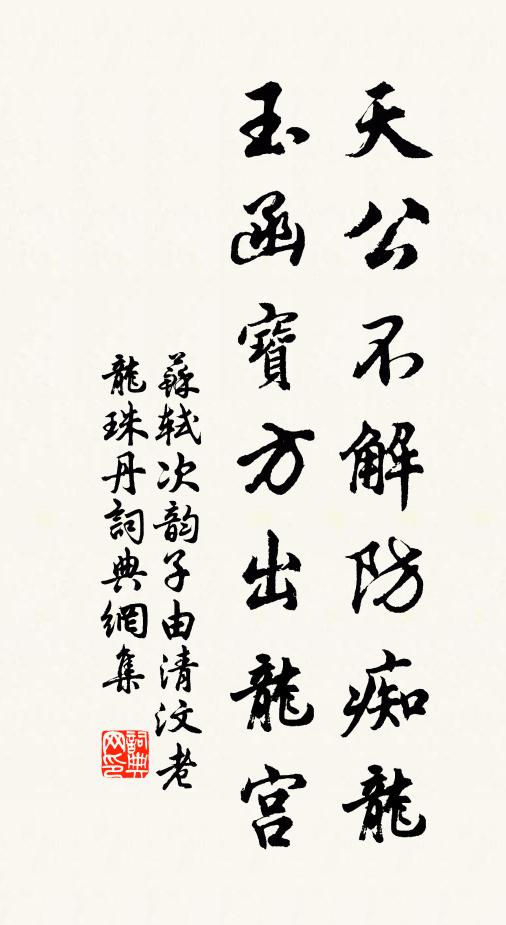 天公不解防痴龍
玉函寶方出龍宮
蘇軾次韵子由清汶老
龍珠丹詞典網集
詞典网印